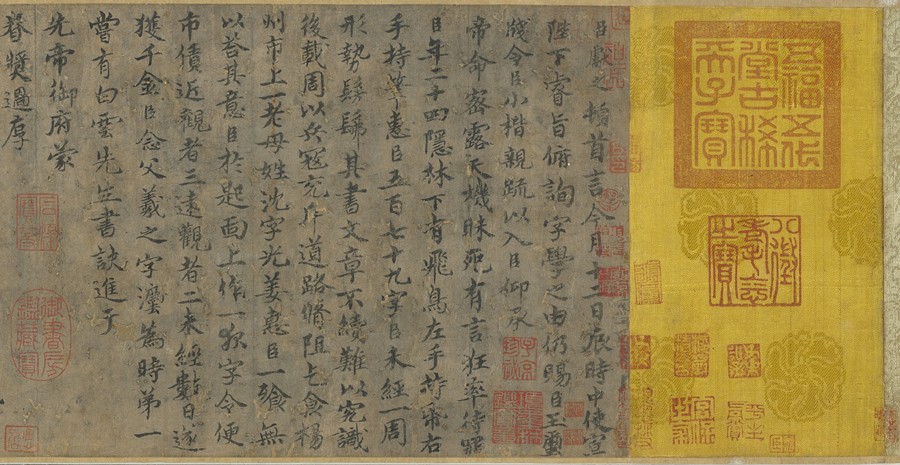 五福五代堂古稀天子寶
八徵耄念之寶
臣獻之頓首言今月十二日辰時中使宣
陛下睿旨俯詢字學之由仍賜臣玉璽
牋令臣小楷親疏以入臣仰承
帝命密露天機昧死有言狂率待罪
臣年二十四隱林下有飛鳥左手持帋右
手持筆惠臣五百七十九字臣未經一周
形勢髣髴其書文章不續難以究識
後載周以兵寇充斥道路脩阻乞食揚
州市上一老母姓沈字光姜惠臣一飡無
以荅其意臣於匙面上作一夜字令便
市債近觀者三遠觀者二未經數日遂
獲千金臣念父羲之字灋為時第一
嘗有白雲先生書訣進于
先帝御府蒙
眷奬過厚
御書房鑑藏寶